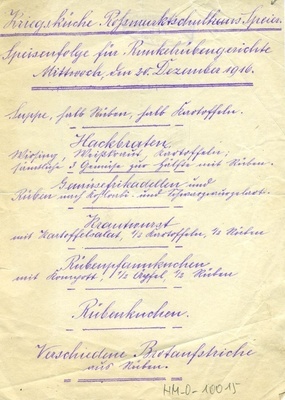 Kriegsküche Roßmarktschulhaus Speier.
Speisenfolge für Runkelrübengerichte
Mittwoch, den 20. Dezember 1916.
Suppe, halb Rüben, halb Kartoffeln.
Hackbraten
Wirsing Weißkraut Kartoffeln,
sämtliche 3 Gemüse zur Hälfte mit Rüben.
Gemüsefrikadellen und
Rüben nach Kohlrabi- und Schwarzwurzelart.
Krautwurst
mit Kartoffelsalat, 1/2 Kartoffeln, 1/2 Rüben
Rübenpfannkuchen
mit Kompott, 1/2 Äpfel, 1/2 Rüben
Rübenkuchen.
Verschiedene Brotaufstriche
aus Rüben.
HM-0-10015